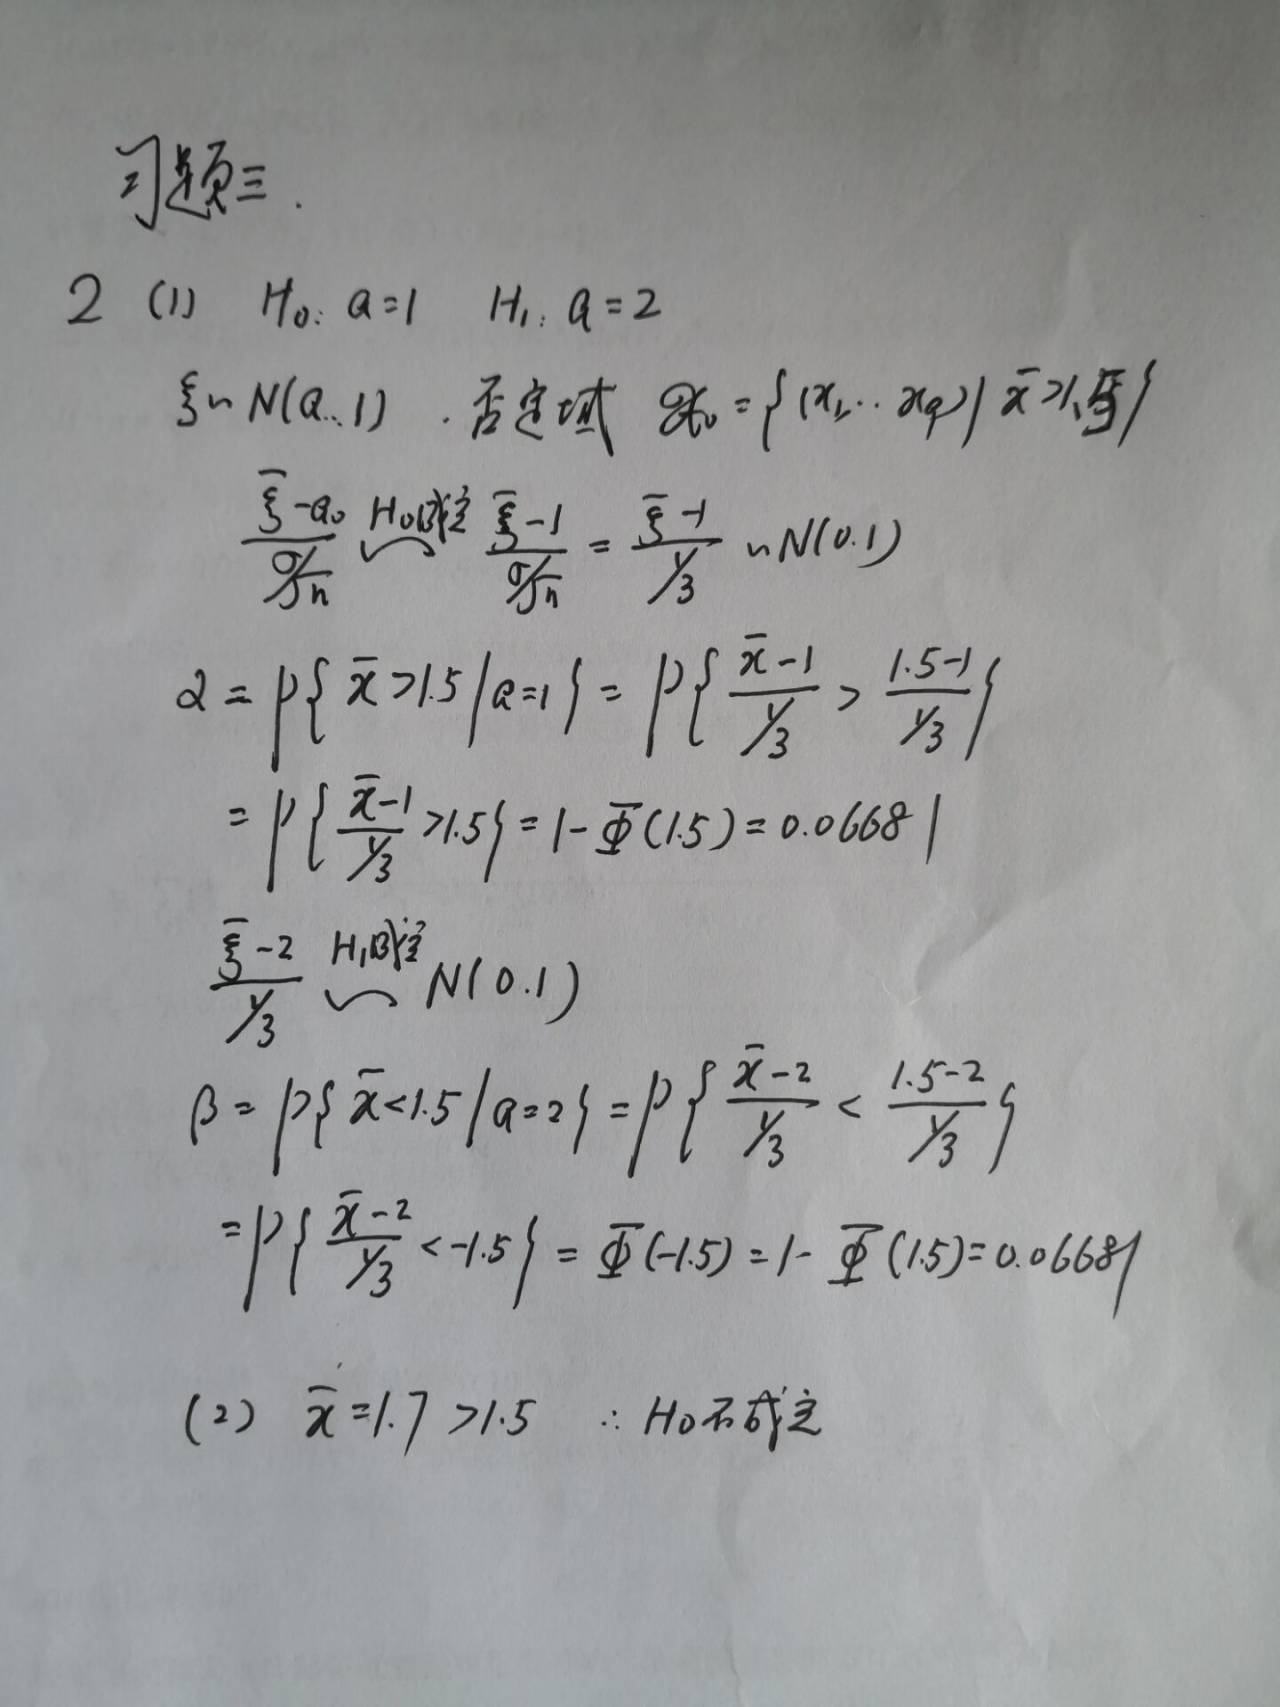 习题三.
2 (1) H₀: a=1 H₁: a=2
ξ~N(a.1) . 否定域 𝒳₀={(x₁…x₉)| x̄>1.5}
(ξ̄-a₀)/(σ/√n) H₀成立~ (ξ̄-1)/(σ/√n) = (ξ̄-1)/(1/3) ~N(0.1)
α=P{x̄>1.5|a=1}=P{(x̄-1)/(1/3) > (1.5-1)/(1/3)}
=P{(x̄-1)/(1/3)>1.5}=1-Φ(1.5)=0.0668
(ξ̄-2)/(1/3) H₁成立~ N(0.1)
β=P{x̄<1.5|a=2}=P{(x̄-2)/(1/3) < (1.5-2)/(1/3)}
=P{(x̄-2)/(1/3)<-1.5}=Φ(-1.5)=1-Φ(1.5)=0.0668
(2) x̄=1.7>1.5 ∴H₀不成立